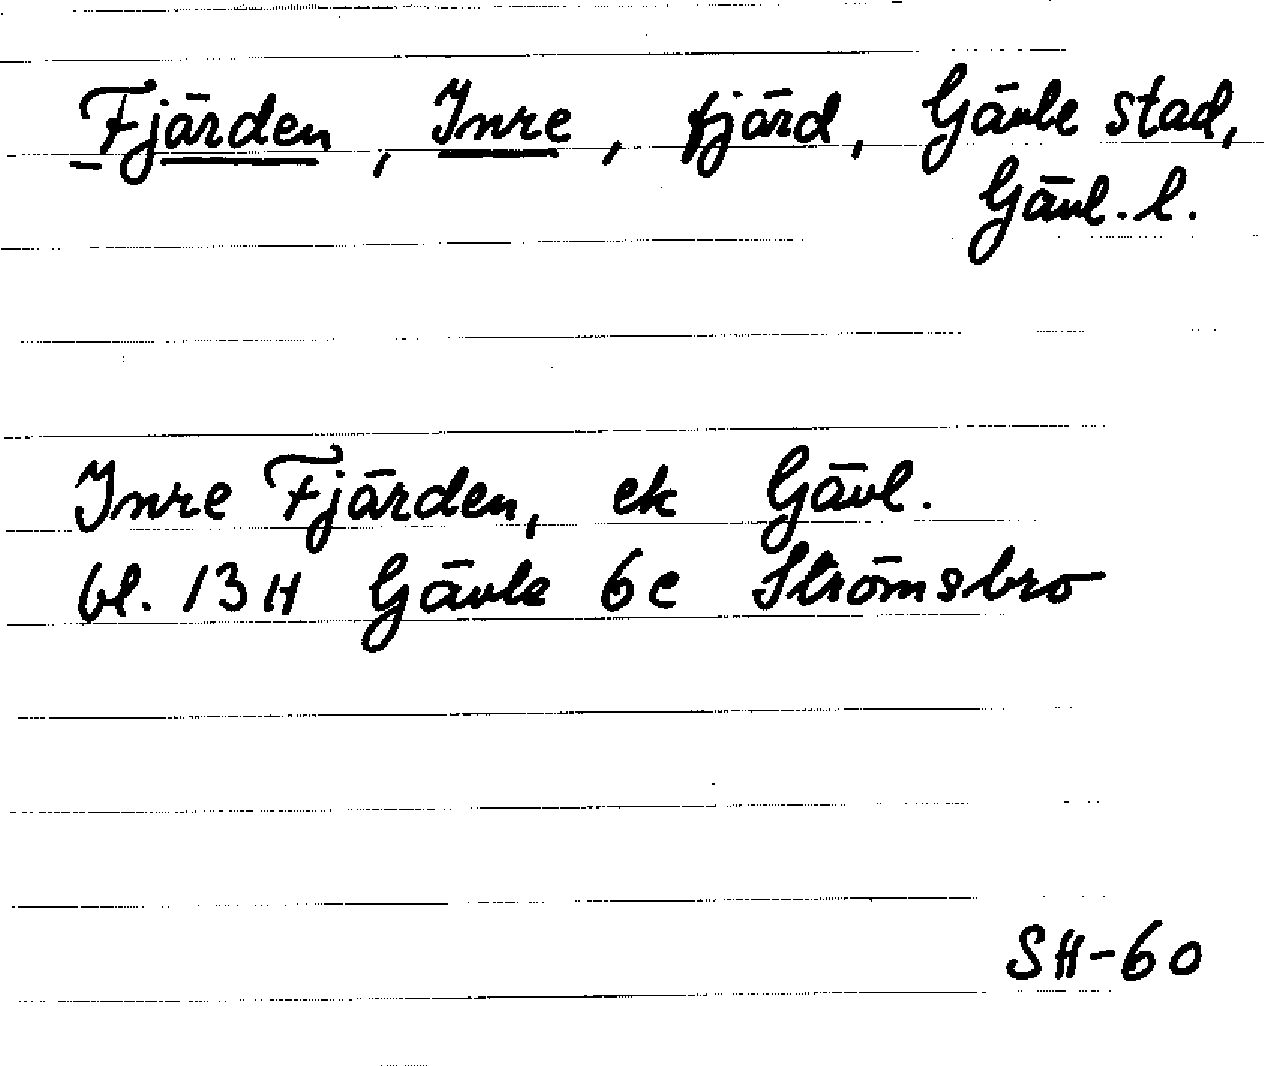 Fjärden, Inre, fjärd, Gävle stad,
Gävl. l.
Inre Fjärden, ek Gävl.
bl. 13H Gävle 6c Strömsbro
SH-60